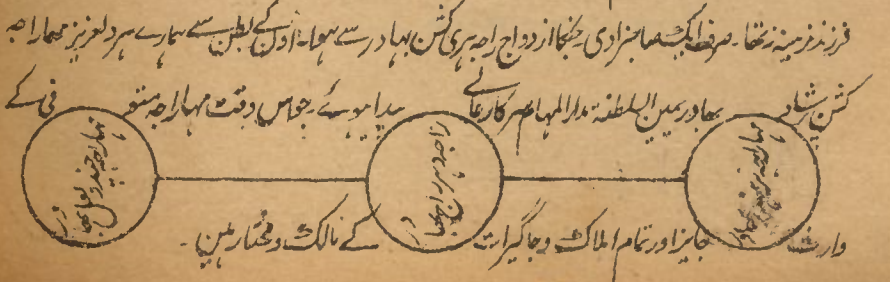 فرزند نرینہ نہ تھا۔ صرف ایک صاحبزادی۔ جنکا ازدواج راجہ ہری کشن بہادر سے ہوا۔ اون کے بطن سے ہمارے ہر دلعزیز مہاراجہ
کشن پرشاد بہادر یمین السلطنۃ مدارالمہام سرکار عالے پیدا ہوئے۔ جو اس وقت مہاراجہ متوفی کے
مہاراجہ چندولعل بہادر
وارث جایز اور تمام املاک و جاگیرات کے مالک و مختار ہین۔